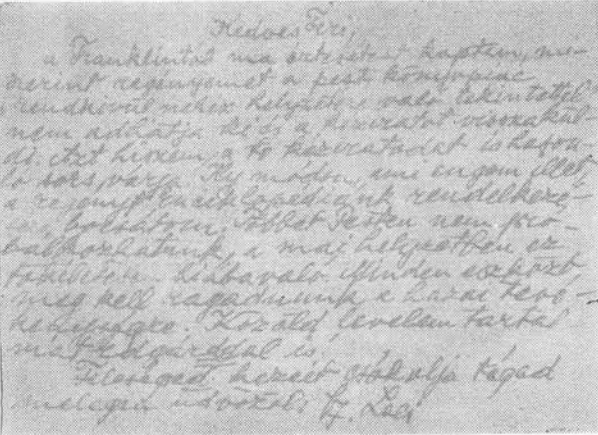 Kedves Feri,
a Franklintól ma értesítést kaptam, mi-
szerint regényemet a pesti könyvpiac
rendkívül nehéz helyzetére való tekintettel
nem adhatja ki és a kéziratot visszakül-
di. Azt hiszem, a te kéziratodat is hason-
ló sors várja. Ily módon, ami engem illet,
a regényt Enciklopédiánk rendelkezé-
sére bocsátom. Többet Pesten nem pró-
bálkozhatunk, a mai helyzetben ez
hiábavaló. Minden eszközt
meg kell ragadnunk a hazai tevé-
kenységre. Közöld levelem tartal
mát is,
Feleséged kezeit csókolja téged
melegen üdvözöl: Laci